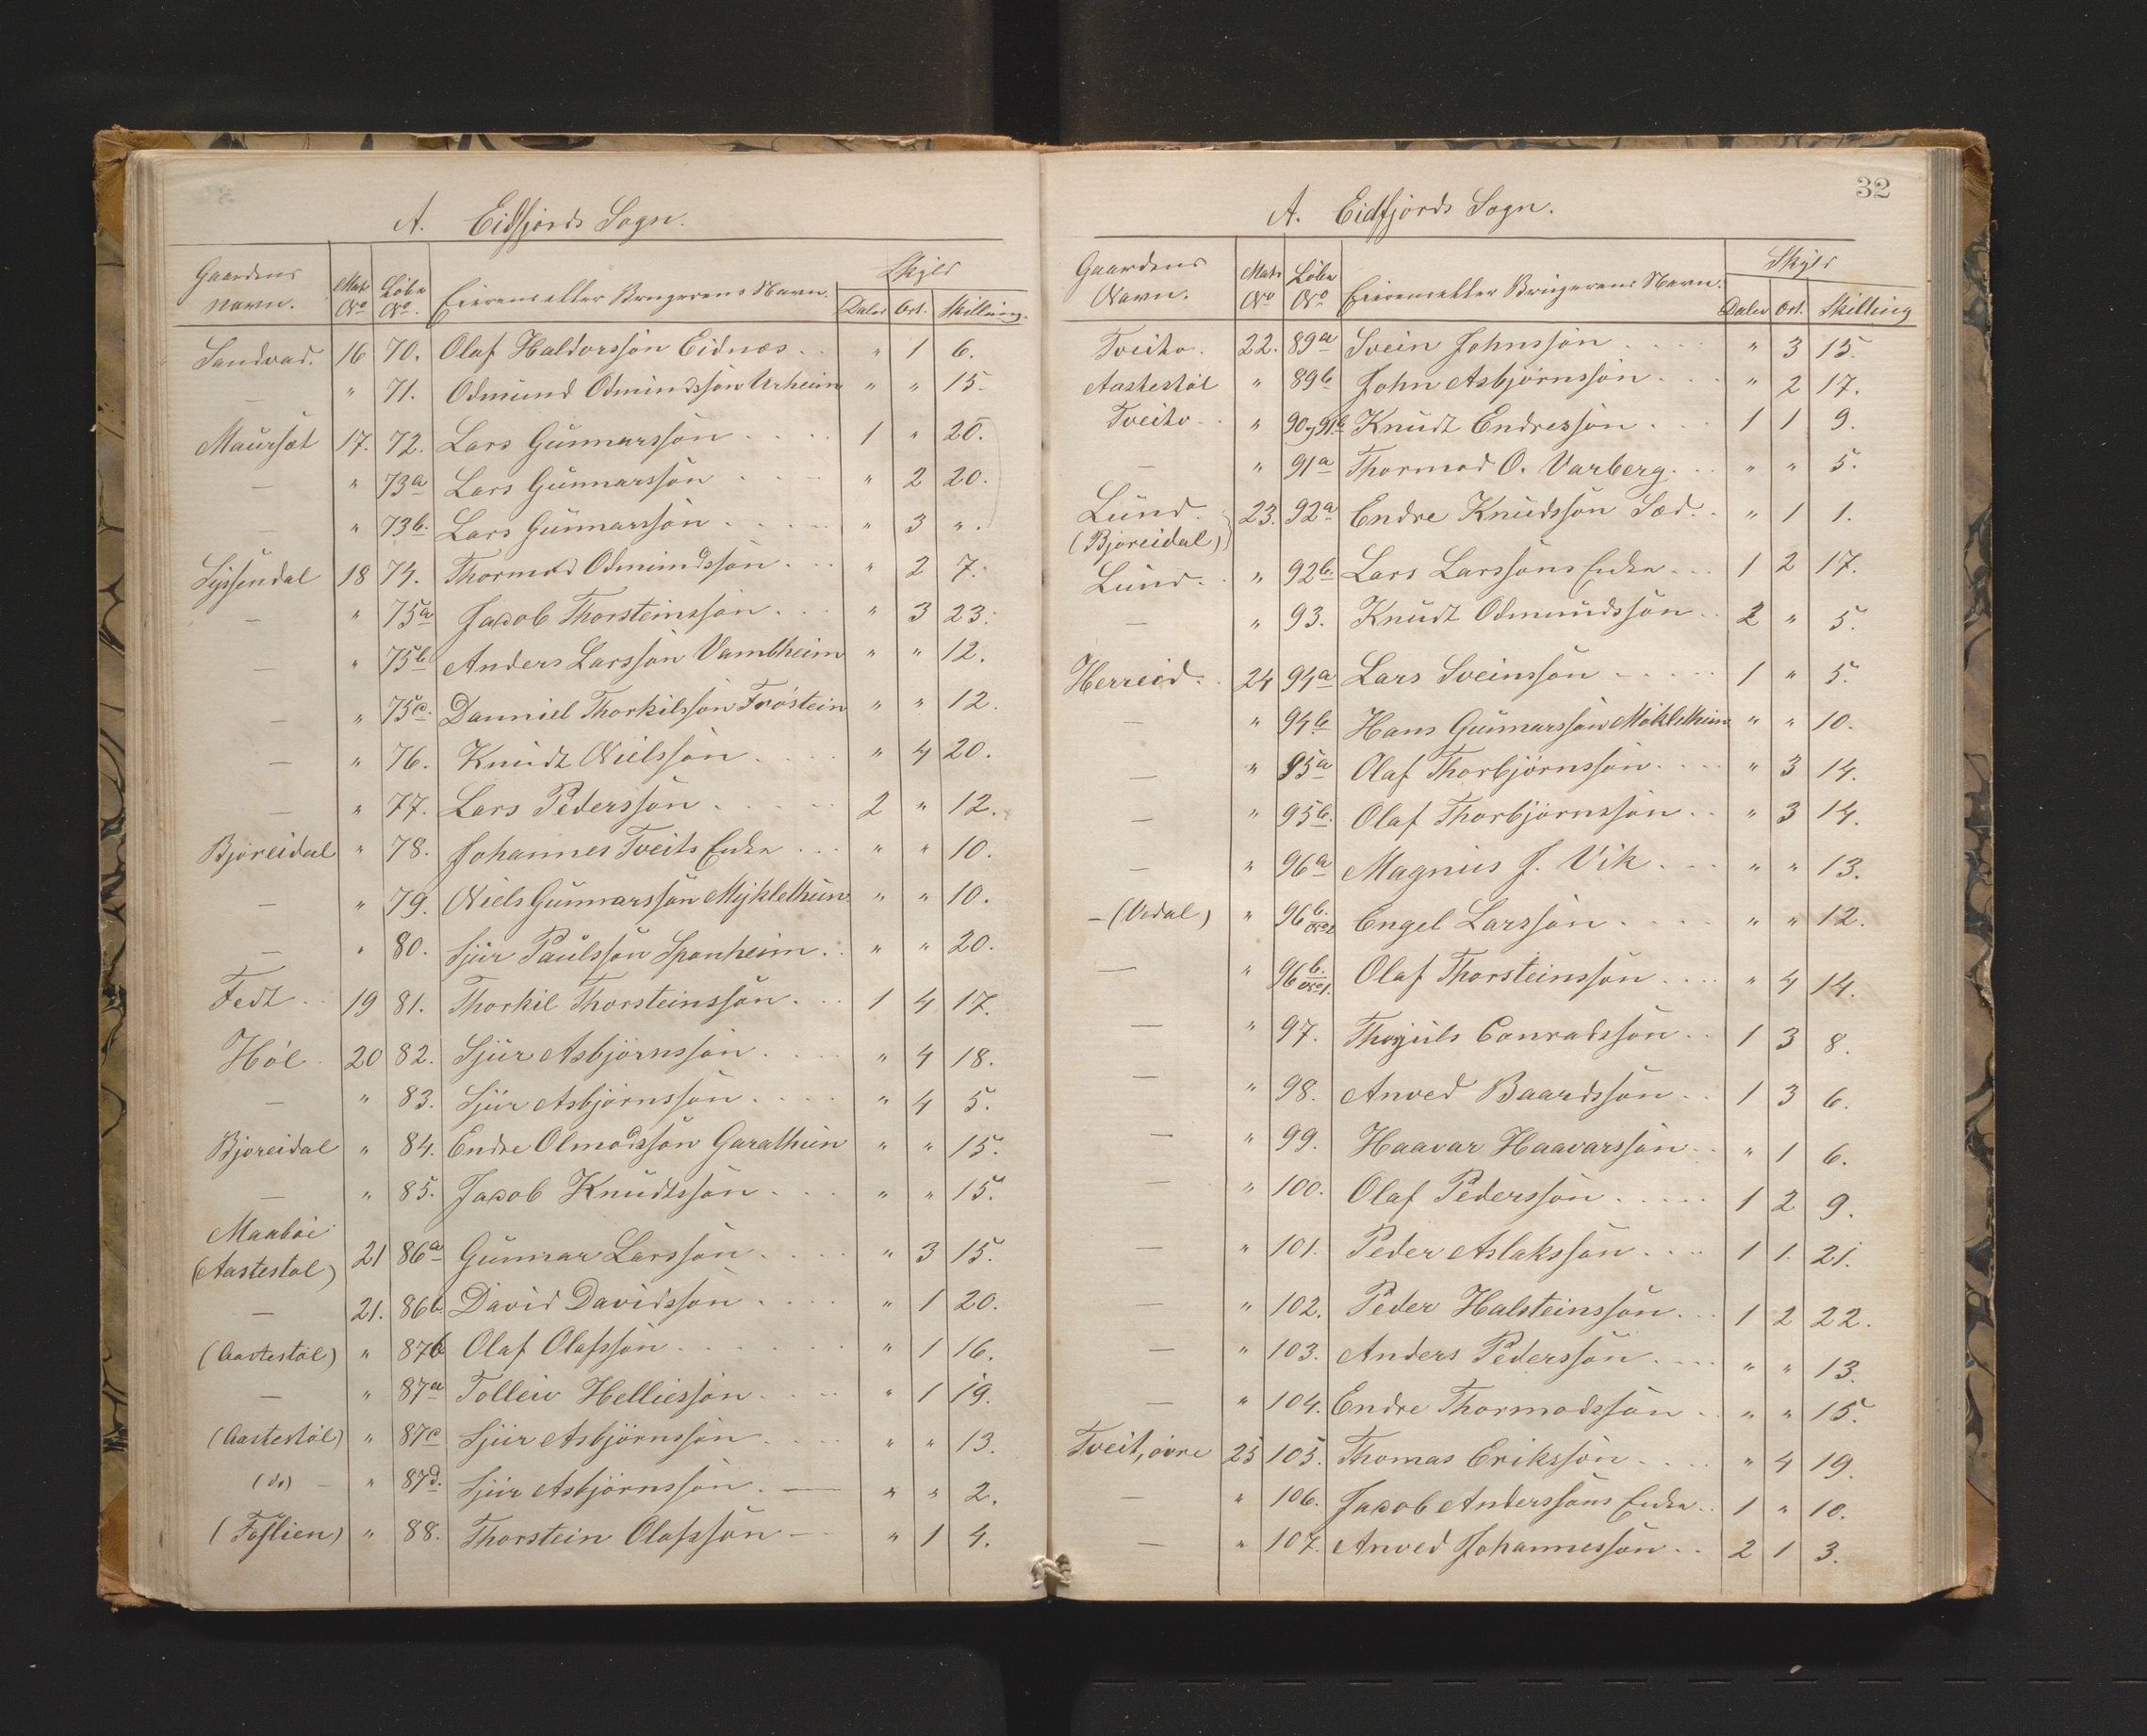 A. Eidfjords Sogn.
Gaardens Navn. Matr No Løbe No. Eierens eller Brugerens Navn. Skyld Daler Ort. Skilling.
Sandvad. 16 70. Olaf Haldorssön Eidnæs . . " 1 6.
— " 71. Odmund Odmundssön Urheim " " 15.
Maursæt 17. 72. Lars Gunnarssön . . . . 1 " 20.
— " 73a Lars Gunnarssön . . . . " 2 20.
— " 73b. Lars Gunnarssön . . . . " 3 ".
Syssendal 18 74. Thormod Odmundssön . . . " 2 7.
— " 75a Jacob Thorsteinssön . . . " 3 23.
— " 75b Anders Larssön Vambheim " " 12.
— " 75c. Danniel Thorkilssön Frøstein " " 12.
— " 76. Knudt Nielssön . . . . " 4 20.
— " 77. Lars Pederssön . . . . 2 " 12.
Bjoreidal " 78. Johannes Tveits Enke . . . " " 10.
— " 79. Niels Gunnarssön Myklethun. " " 10.
— " 80. Sjur Paulssön Spanheim . . " " 20.
Fedt . . 19 81. Thorkil Thorsteinssön . . . 1 4 17.
Höl . 20 82. Sjur Asbjörnssön . . . . " 4 18.
— " 83. Sjur Asbjörnssön . . . . " 4 5.
Bjoreidal " 84. Endre Olmodssön Garathun " " 15.
— " 85. Jacob Knudtssön . . . . " " 15.
Maaböe
(Aastestöl) 21 86a Gunnar Larssön . . . . " 3 15.
— 21. 86b. David Davidssön . . . . " 1 20.
(Aastestöl) " 87b Olaf Olafssön . . . . . " 1 16.
— " 87a Tolleiv Helliessön . . . . " 1 19.
(Aastestöl) " 87c Sjur Asbjörnssön . . . . " " 13.
(do) — " 87d. Sjur Asbjörnssön . — " " 2.
(Foslien) " 88. Thorstein Olafssön — " 1 4.
32
A. Eidfjords Sogn.
Gaardens Navn. Matr No Løbe No Eierens eller Brugerens Navn. Skyld Daler Ort. Skilling
Tveito . 22. 89a Svein Johnssön . . . . " 3 15.
Aastestöl " 89b John Asbjörnssön . . . " 2 17.
Tveito . . " 90 og 91b Knudt Endressön . . . 1 1 9.
— " 91a Thormod O. Varberg . . . " " 5.
Lund . 23. 92a Endre Knudssön Sæd. . " 1 1.
(Bjoreidal)
Lund . . " 92b. Lars Larssöns Enke . . . 1 2 17.
— " 93. Knudt Odmundssön . . 2 " 5.
Herreid . . 24 94a Lars Sveinssön . . . . . 1 " 5.
— " 94b. Hans Gunnarssön Möklethun " " 10.
— " 95a Olaf Thorbjörnssön . . . . " 3 14.
— " 95b. Olaf Thorbjörnssön . . " 3 14.
— " 96a Magnus J. Vik . . . " " 13.
— (Vedal) " 96 b. No 2 Engel Larssön . . . . " " 12.
— " 96 b. No 1. Olaf Thorsteinssön . . . . " 4 14.
— " 97. Thorjuls Conradssön . . 1 3 8.
— " 98. Anved Baardssön . . 1 3 6.
— " 99. Haavar Haavarssön . . " 1 6.
— " 100. Olaf Pederssön . . . . . 1 2 9.
— " 101. Peder Aslakssön . . . . 1 1. 21.
— " 102. Peder Halsteinssön . . . 1 2 22.
— " 103. Anders Pederssön . . . . " " 13.
— " 104. Endre Thormodssön . . " " 15.
Tveit, övre 25 105. Thomas Erikssön . . . . " 4 19.
— " 106. Jacob Anderssöns Enke . . 1 " 10.
— " 107. Anved Johannessön . . 2 1 3.